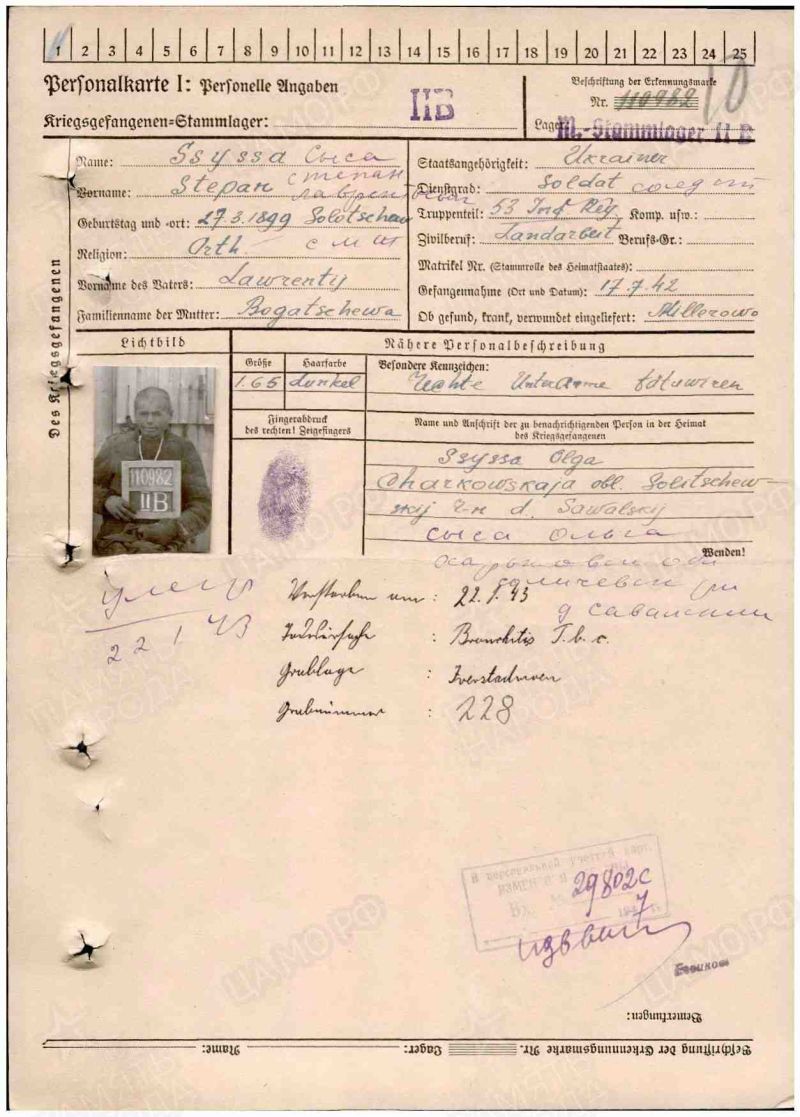 1 2 3 4 5 6 7 8 9 10 11 12 13 14 15 16 17 18 19 20 21 22 23 24 25
Personalkarte I: Personelle Angaben
Kriegsgefangenen=Stammlager: II B
Beschriftung der Erkennungsmarke
Nr. 110982
Lager: M.-Stammlager II B
Des Kriegsgefangenen
Name: Ssyssa Сыса
Vorname: Stepan Степан
Geburtstag und =ort: 27.3.1899 Solotschew
Religion: Orth
Vorname des Vaters: Lawrentij
Familienname der Mutter: Bogatschewa
Staatsangehörigkeit: Ukrainer
Dienstgrad: Soldat солдат
Truppenteil: 53 Inf Reg Komp. usw.:
Zivilberuf: Landarbeit Berufs-Gr.:
Matrikel Nr. (Stammrolle des Heimatstaates):
Gefangennahme (Ort und Datum): 17.7.42
Ob gesund, krank, verwundet eingeliefert: Millerowo
Lichtbild
Nähere Personalbeschreibung
Größe
Haarfarbe
1.65
dunkel
Besondere Kennzeichen:
Rechte Unterarme
Fingerabdruck
des rechten! Zeigefingers
Name und Anschrift der zu benachrichtigenden Person in der Heimat
des Kriegsgefangenen
Ssyssa Olga
Charkowskaja obl. Solotschew-
skij r-n d. Sawalskij
Сыса Ольга
Wenden!
110982
II B
умер
22 1 43
Verstorben am: 22.1.43
Todesursache : Bronchitis T.b.c.
Grablage :
Grabnummer : 228
В персональной учетной карт.
Вх. 29802с
Bemerkungen:
Beschriftung der Erkennungsmarke Nr. Lager: Name:
ЦАМО РФ
ПАМЯТЬ НАРОДА